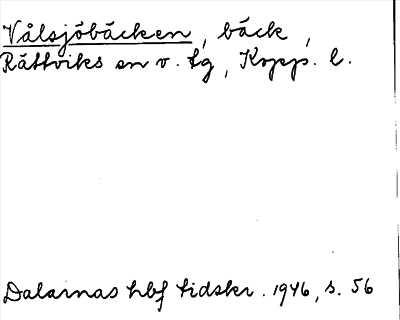 Vålsjöbäcken, bäck,
Rättviks sn v. tg, Kopp. l.
Dalarnas hbf tidskr. 1946, s. 56